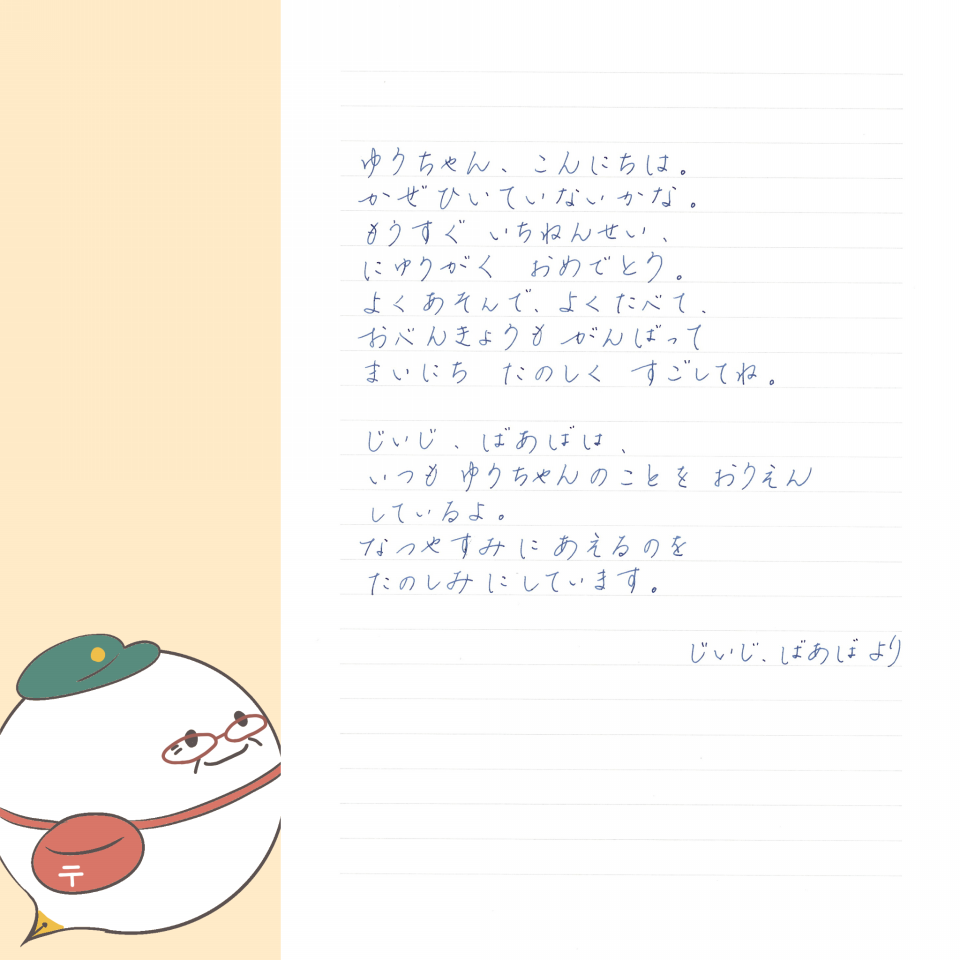 ゆうちゃん、こんにちは。
かぜひいていないかな。
もうすぐ いちねんせい、
にゅうがく おめでとう。
よくあそんで、よくたべて、
おべんきょうも がんばって
まいにち たのしく すごしてね。
じいじ、ばあばは、
いつも ゆうちゃんのことを おうえん
しているよ。
なつやすみに あえるのを
たのしみにしています。
じいじ、ばあばより
〒